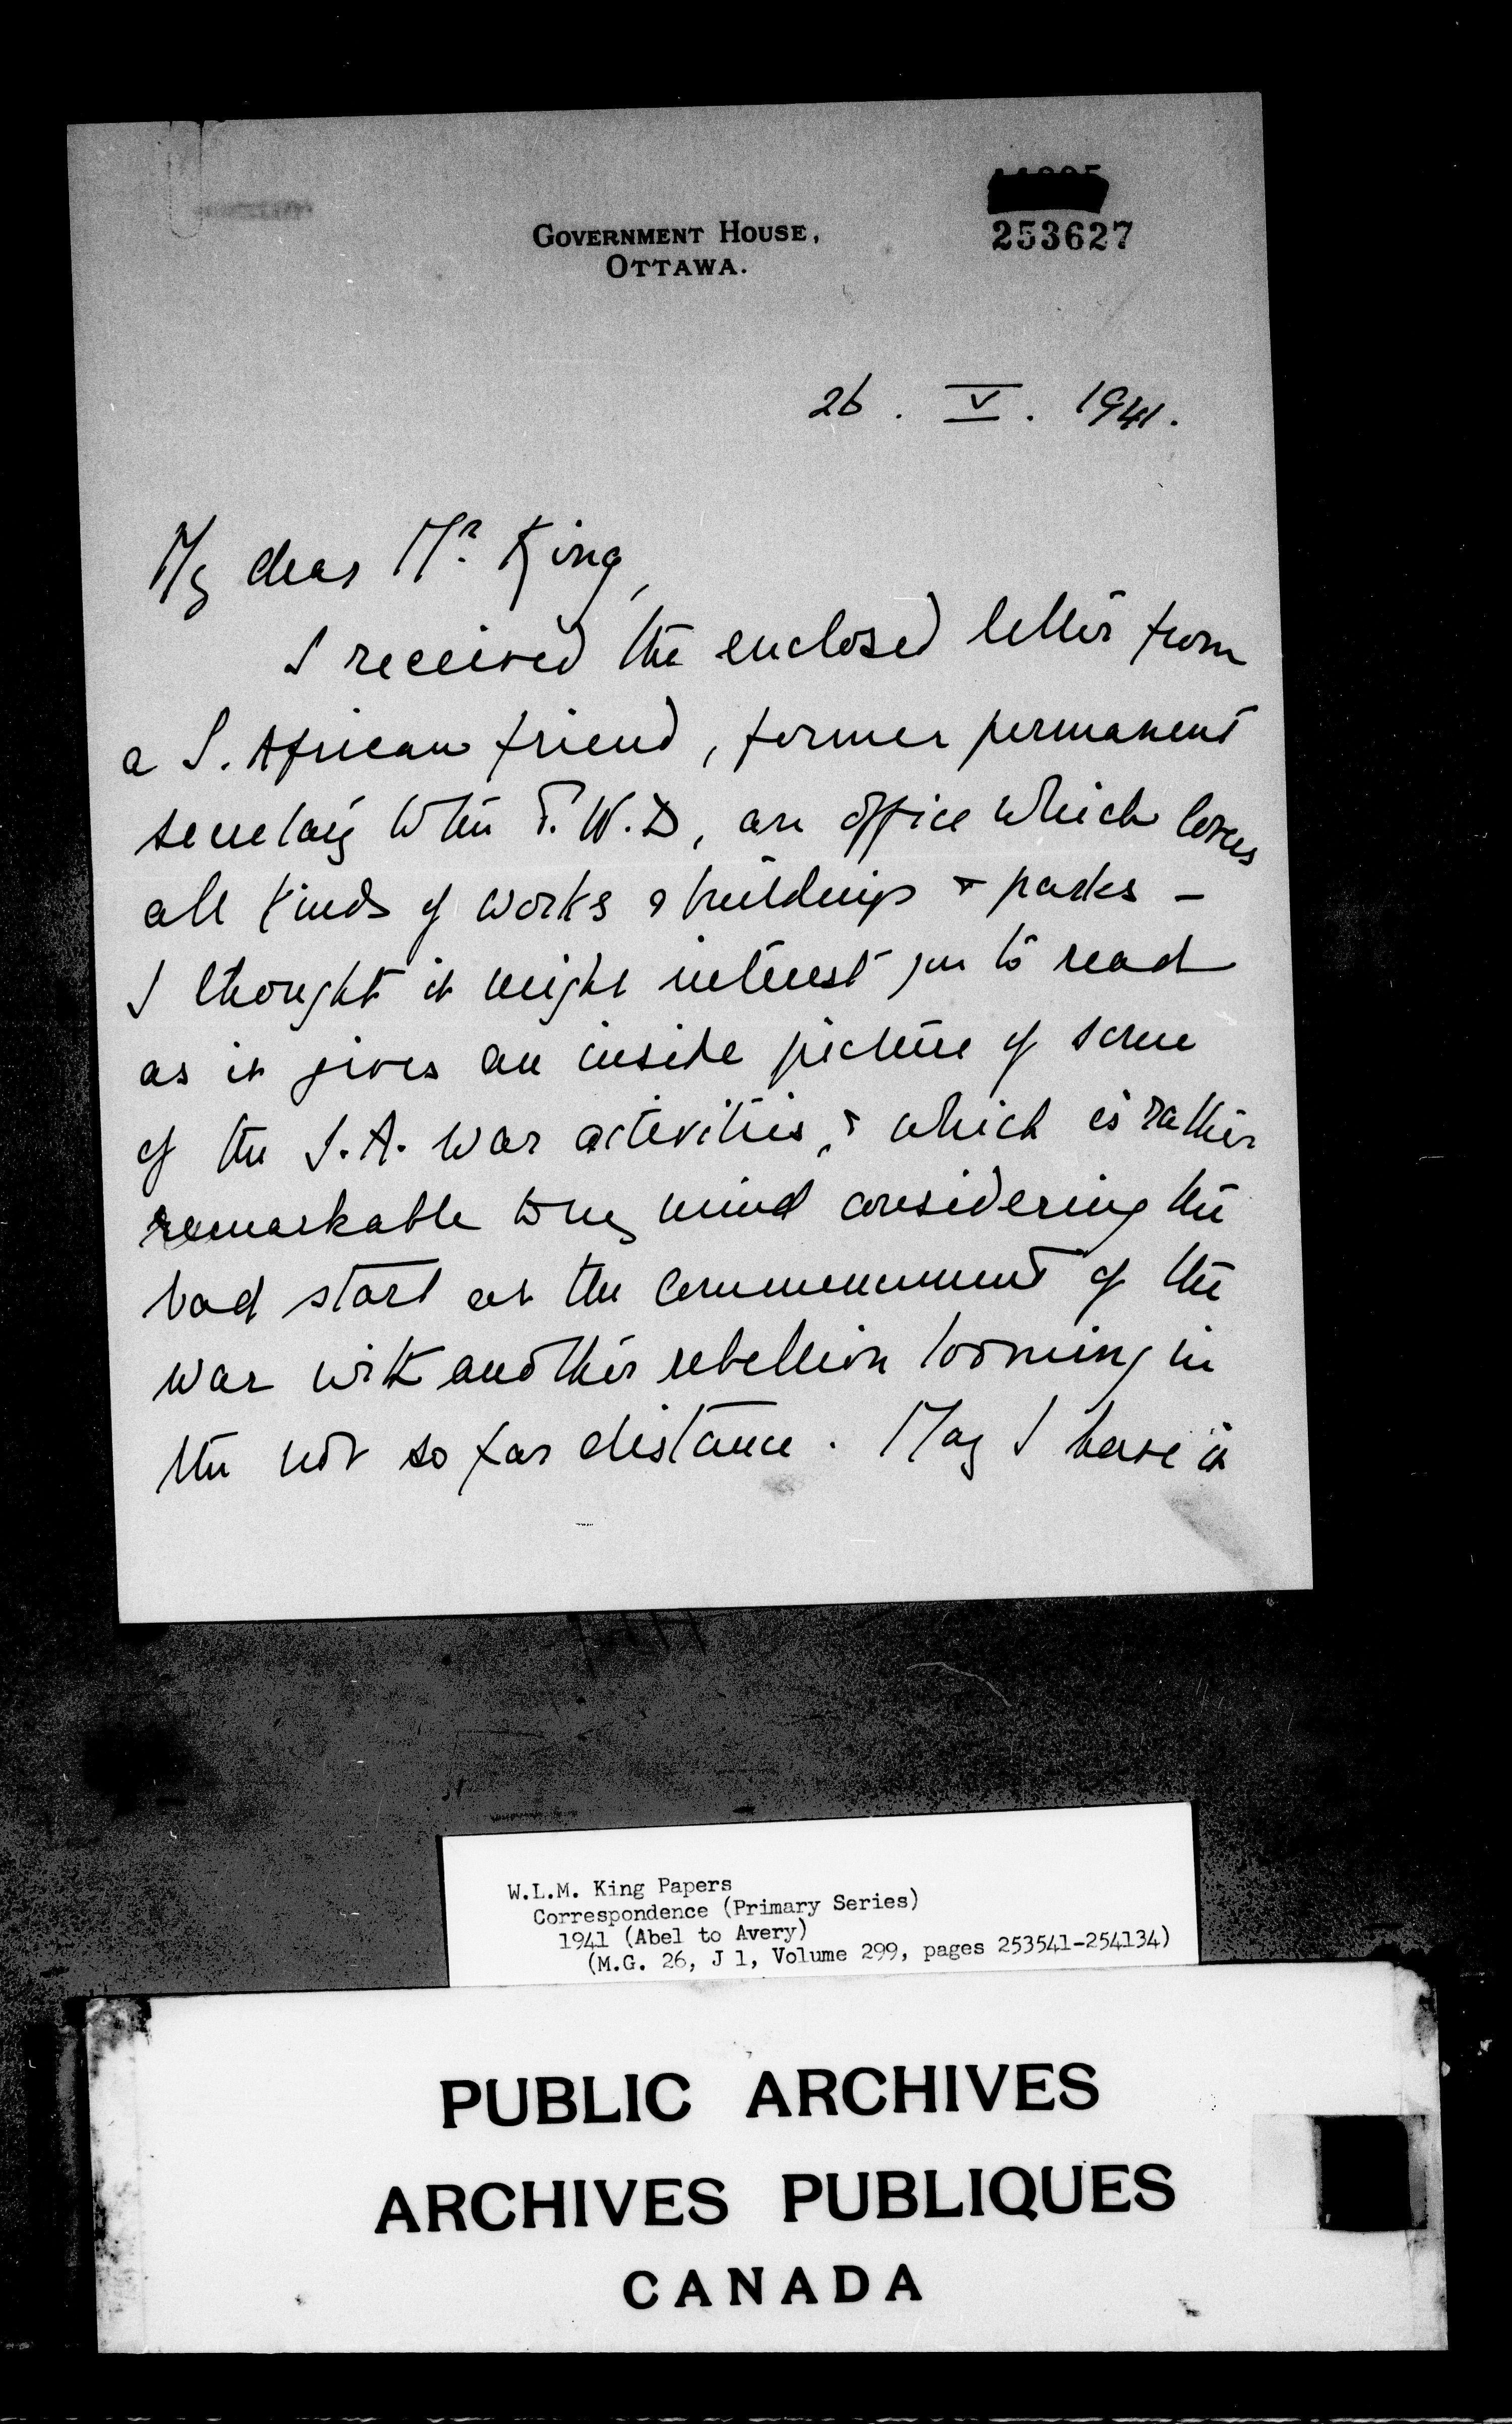 253627
GOVERNMENT HOUSE,
OTTAWA.
26. V. 1941.
My dear Mr. King,
I received the enclosed letter from
a S. African friend, former permanent
secretary to the P.W.D, an office which covers
all kinds of works & buildings & parks –
I thought it might interest you to read
as it gives an inside picture of some
of the S.A. war activities, & which is rather
remarkable to my mind considering the
bad start at the commencement of the
war with another rebellion looming in
the not so far distance. May I have it
W.L.M. King Papers
Correspondence (Primary Series)
1941 (Abel to Avery)
(M.G. 26, J 1, Volume 299, pages 253541-254134)
PUBLIC ARCHIVES
ARCHIVES PUBLIQUES
CANADA